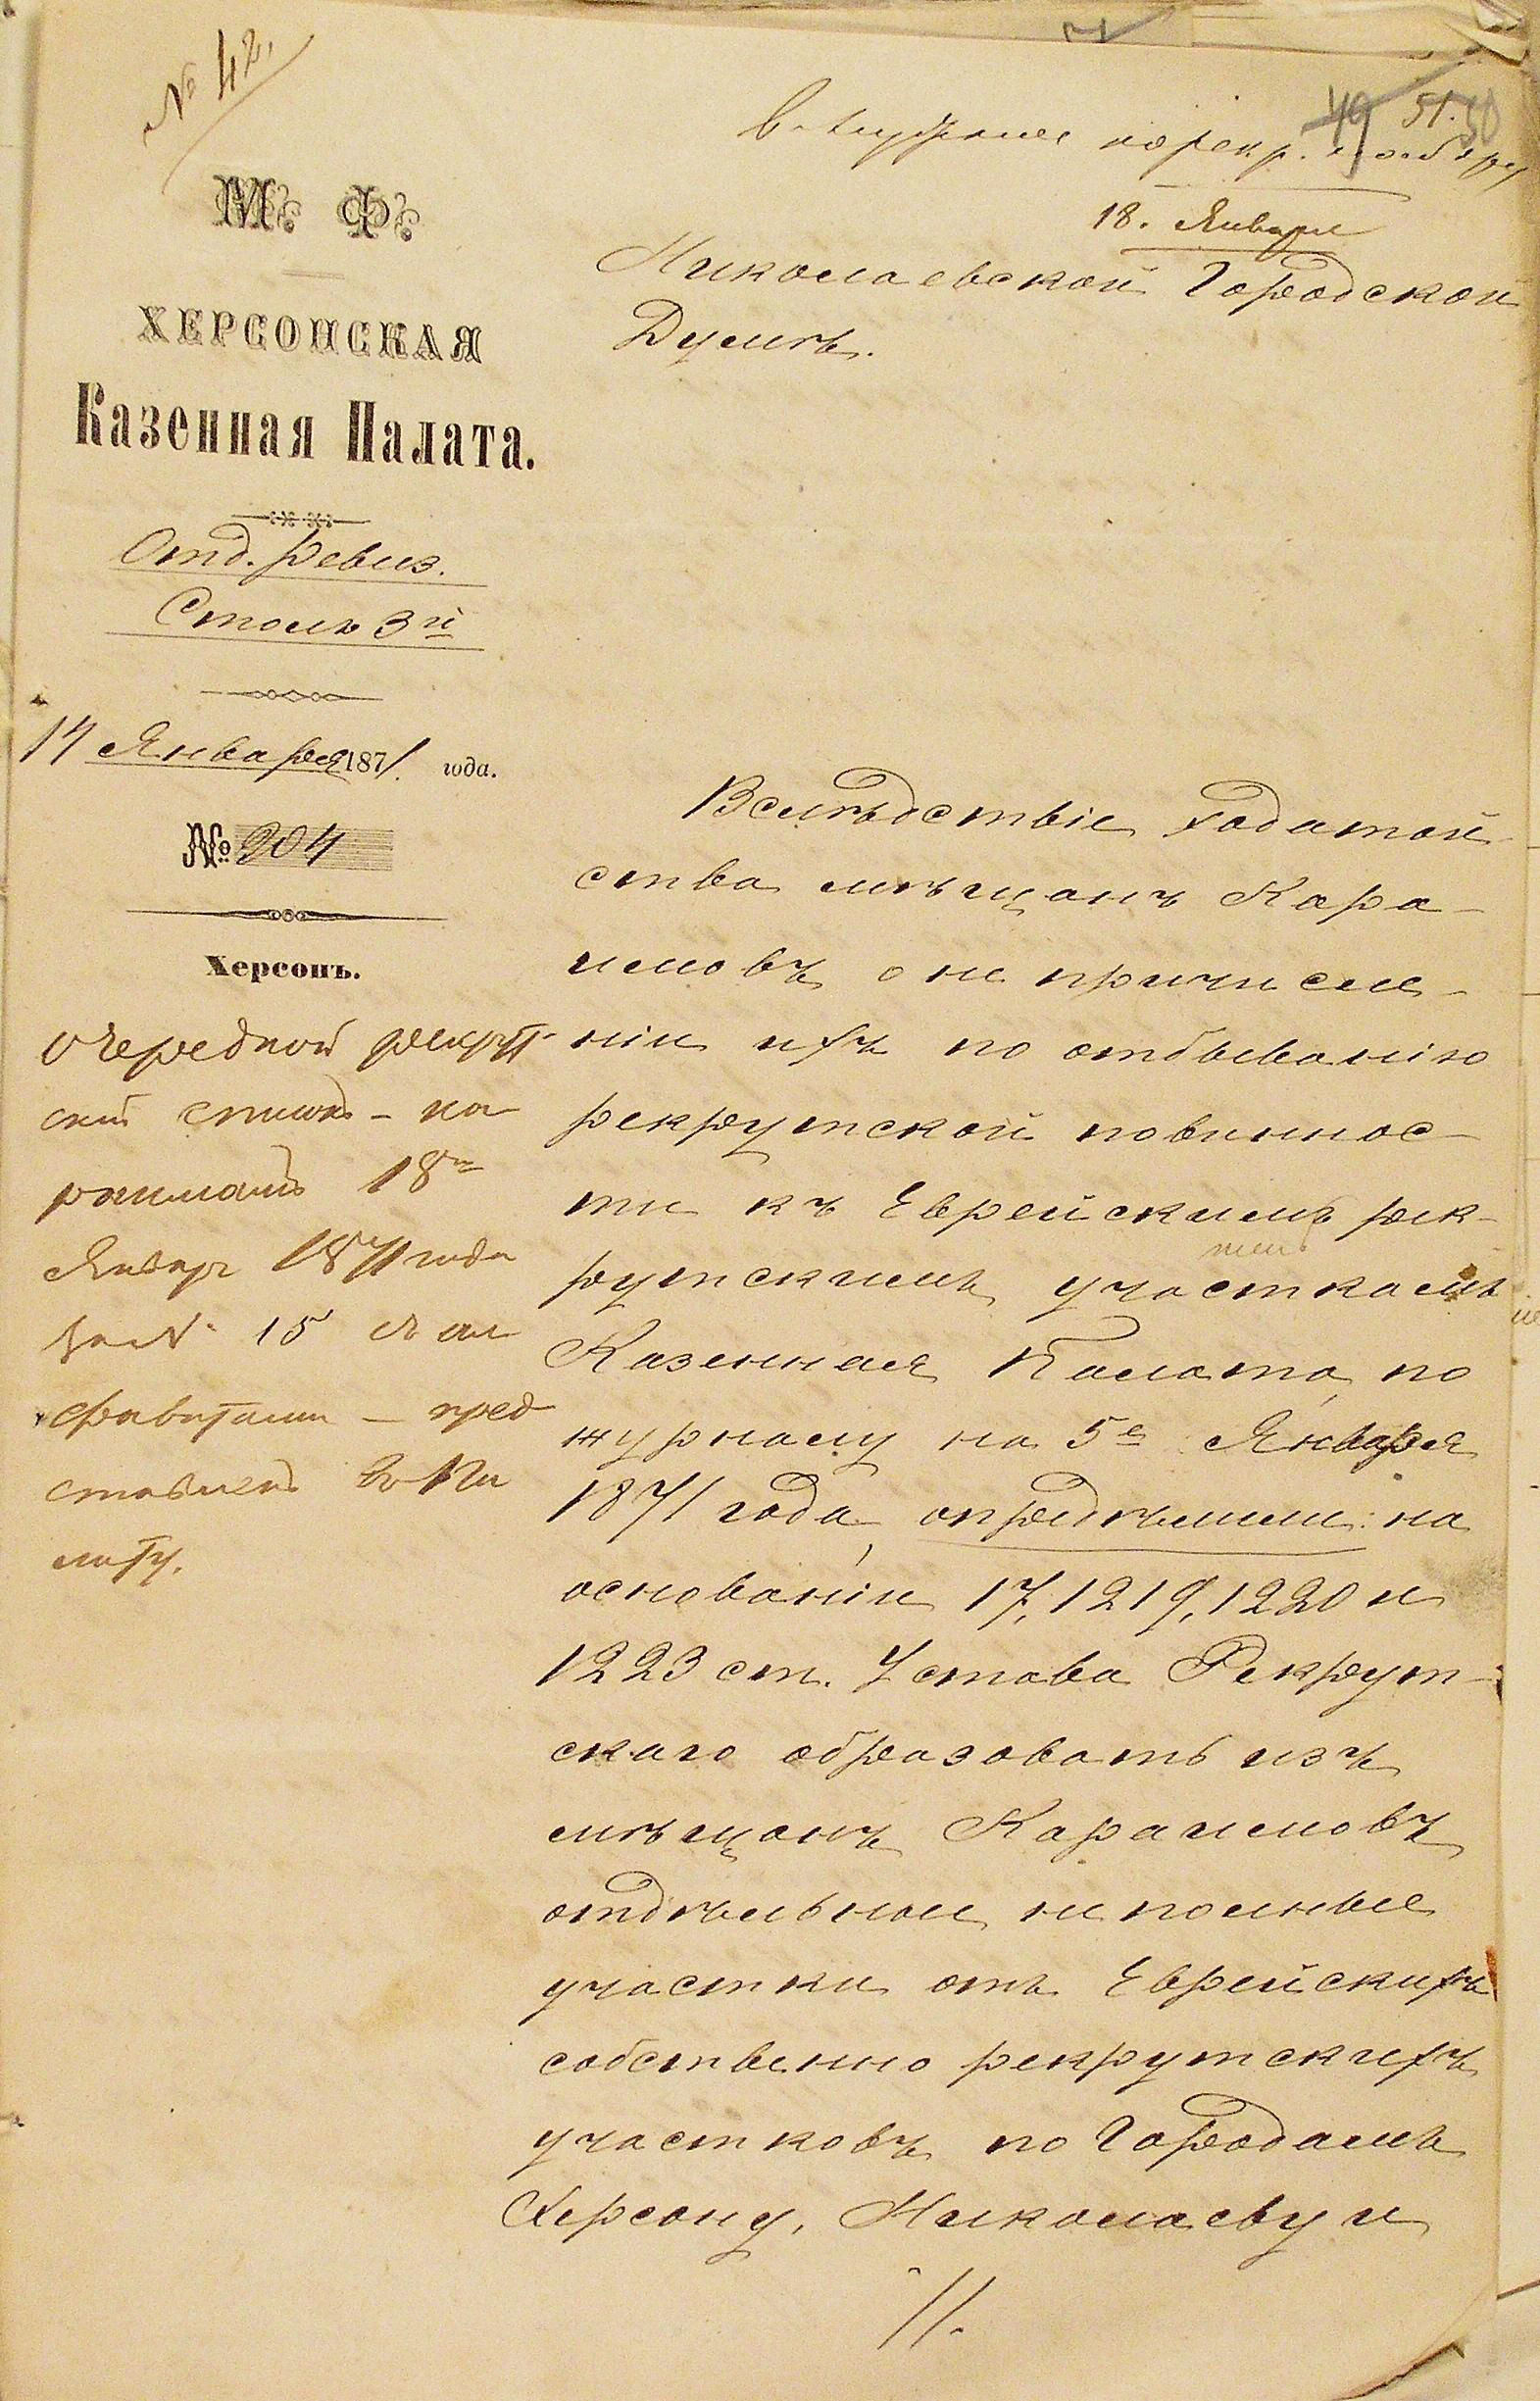 № 42.
49 51. 50
18. Января
М. Ф.
ХЕРСОНСКАЯ
Казенная Палата.
Отд. Ревиз.
Столъ 3й
14 Января 1871. года.
№ 204
Херсонъ.
очередной рекрут-
скій списокъ – ка
раимамъ 18го
Января 1871 года
за № 15 съ ал
фавитами – пред
ставленъ въ Па
лату.
Николаевской Городской
Думѣ.
Вслѣдствіе ходатай-
ства мѣщанъ Кара-
имовъ о не причисле-
ніи ихъ по отбыванію
рекрутской повиннос-
ти къ Еврейскимъ рек-
рутскимъ участкамъ
Казенная Палата, по
журналу на 5е Января
1871 года, опредѣлили: на
основаніи 17, 1219, 1220 и
1223 ст. Устава Рекрут-
скаго образовать изъ
мѣщанъ Караимовъ
отдѣльные не полные
участки отъ Еврейскихъ
собственно рекрутскихъ
участковъ по Городамъ
Херсону, Николаеву и
//.